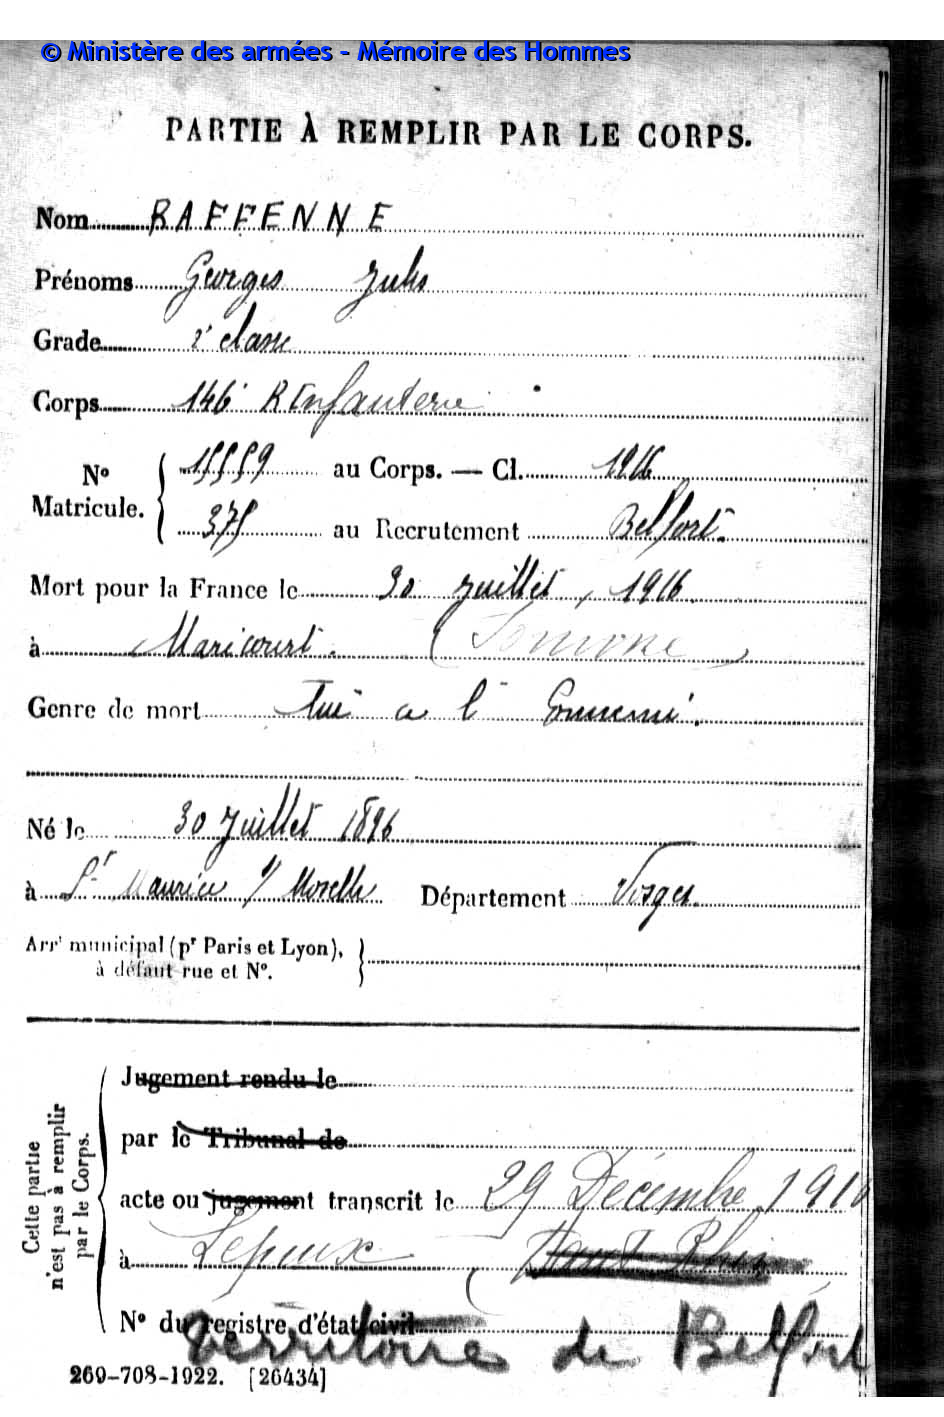 © Ministère des armées - Mémoire des Hommes
PARTIE À REMPLIR PAR LE CORPS.
Nom RAFFENNE
Prénoms Georges Jules
Grade 2e classe
Corps 146e R Infanterie
No Matricule. { 15559 au Corps. — Cl. 1916
375 au Recrutement Belfort.
Mort pour la France le 30 juillet, 1916
à Maricourt. (Somme)
Genre de mort Tué a l'Ennemi.
Né le 30 Juillet 1896
à St Maurice s/ Moselle Département Vosges.
Arrt municipal (pr Paris et Lyon),
à défaut rue et No.
Cette partie
n'est pas à remplir
par le Corps.
Jugement rendu le
par le Tribunal de
acte ou jugement transcrit le 29 Décembre 1916
à Lepuix (Haut Rhin)
No du registre d'état civil
Territoire de Belfort
269-708-1922. [26434]